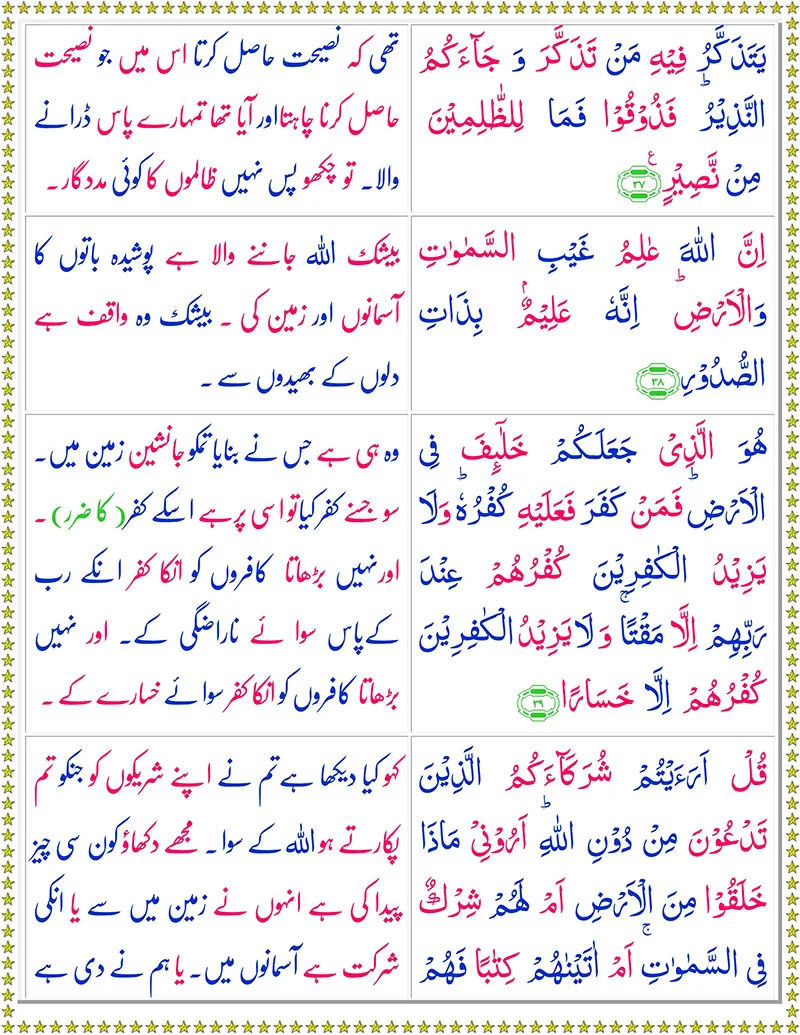 يَتَذَكَّرُ فِيْهِ مَنْ تَذَكَّرَ وَ جَآءَكُمُ
النَّذِيْرُ ؕ فَذُوْقُوْا فَمَا لِلظّٰلِمِيْنَ
مِنْ نَّصِيْرٍ ع ۳۷
تھی کہ نصیحت حاصل کرتا اس میں جو نصیحت
حاصل کرنا چاہتا اور آیا تھا تمہارے پاس ڈرانے
والا۔ تو چکھو پس نہیں ظالموں کا کوئی مددگار۔
اِنَّ اللّٰهَ عٰلِمُ غَيْبِ السَّمٰوٰتِ
وَالْاَرْضِ ؕ اِنَّهٗ عَلِيْمٌۢ بِذَاتِ
الصُّدُوْرِ ۳۸
بیشک اللہ جاننے والا ہے پوشیدہ باتوں کا
آسمانوں اور زمین کی ۔ بیشک وہ واقف ہے
دلوں کے بھیدوں سے ۔
هُوَ الَّذِىْ جَعَلَـكُمْ خَلٰٓٮِٕفَ فِى
الْاَرْضِ ؕ فَمَنْ كَفَرَ فَعَلَيْهِ كُفْرُهٗ ؕ وَلَا
يَزِيْدُ الْـكٰفِرِيْنَ كُفْرُهُمْ عِنْدَ
رَبِّهِمْ اِلَّا مَقْتًا ۚ وَ لَا يَزِيْدُ الْـكٰفِرِيْنَ
كُفْرُهُمْ اِلَّا خَسَارًا ۳۹
وہ ہی ہے جس نے بنایا تمکو جانشین زمین میں۔
سو جسنے کفر کیا تو اسی پر ہے اسکے کفر (کا ضرر) ۔
اور نہیں بڑھاتا کافروں کو انکا کفر انکے رب
کے پاس سوائے ناراضگی کے۔ اور نہیں
بڑھاتا کافروں کو انکا کفر سوائے خسارے کے ۔
قُلْ اَرَءَيْتُمْ شُرَكَآءَكُمُ الَّذِيْنَ
تَدْعُوْنَ مِنْ دُوْنِ اللّٰهِ ؕ اَرُوْنِىْ مَاذَا
خَلَقُوْا مِنَ الْاَرْضِ اَمْ لَهُمْ شِرْكٌ
فِى السَّمٰوٰتِ ۚ اَمْ اٰتَيْنٰهُمْ كِتٰبًا فَهُمْ
کہو کیا دیکھا ہے تم نے اپنے شریکوں کو جنکو تم
پکارتے ہو اللہ کے سوا ۔ مجھے دکھاؤ کون سی چیز
پیدا کی ہے انہوں نے زمین میں سے یا انکی
شرکت ہے آسمانوں میں۔ یا ہم نے دی ہے